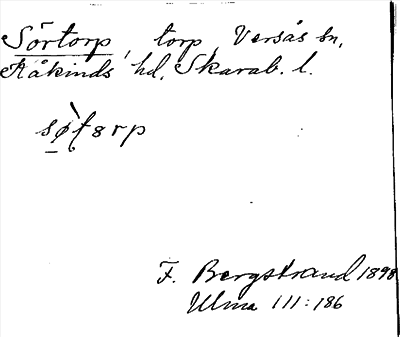 Sörtorp, torp, Versås sn,
Kåkinds hd, Skarab. l.
søtsrp
F. Bergstrand 1898
Ulma 111:186